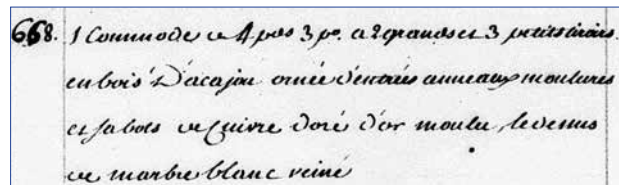 668. 1 Commode de 4 pds 3 po. a 2 grands et 3 petits tiroirs
en bois D'acajou ornée d'entrées anneaux moulures
et sabots de Cuivre doré d'or moulu, le dessus
de marbre blanc veiné